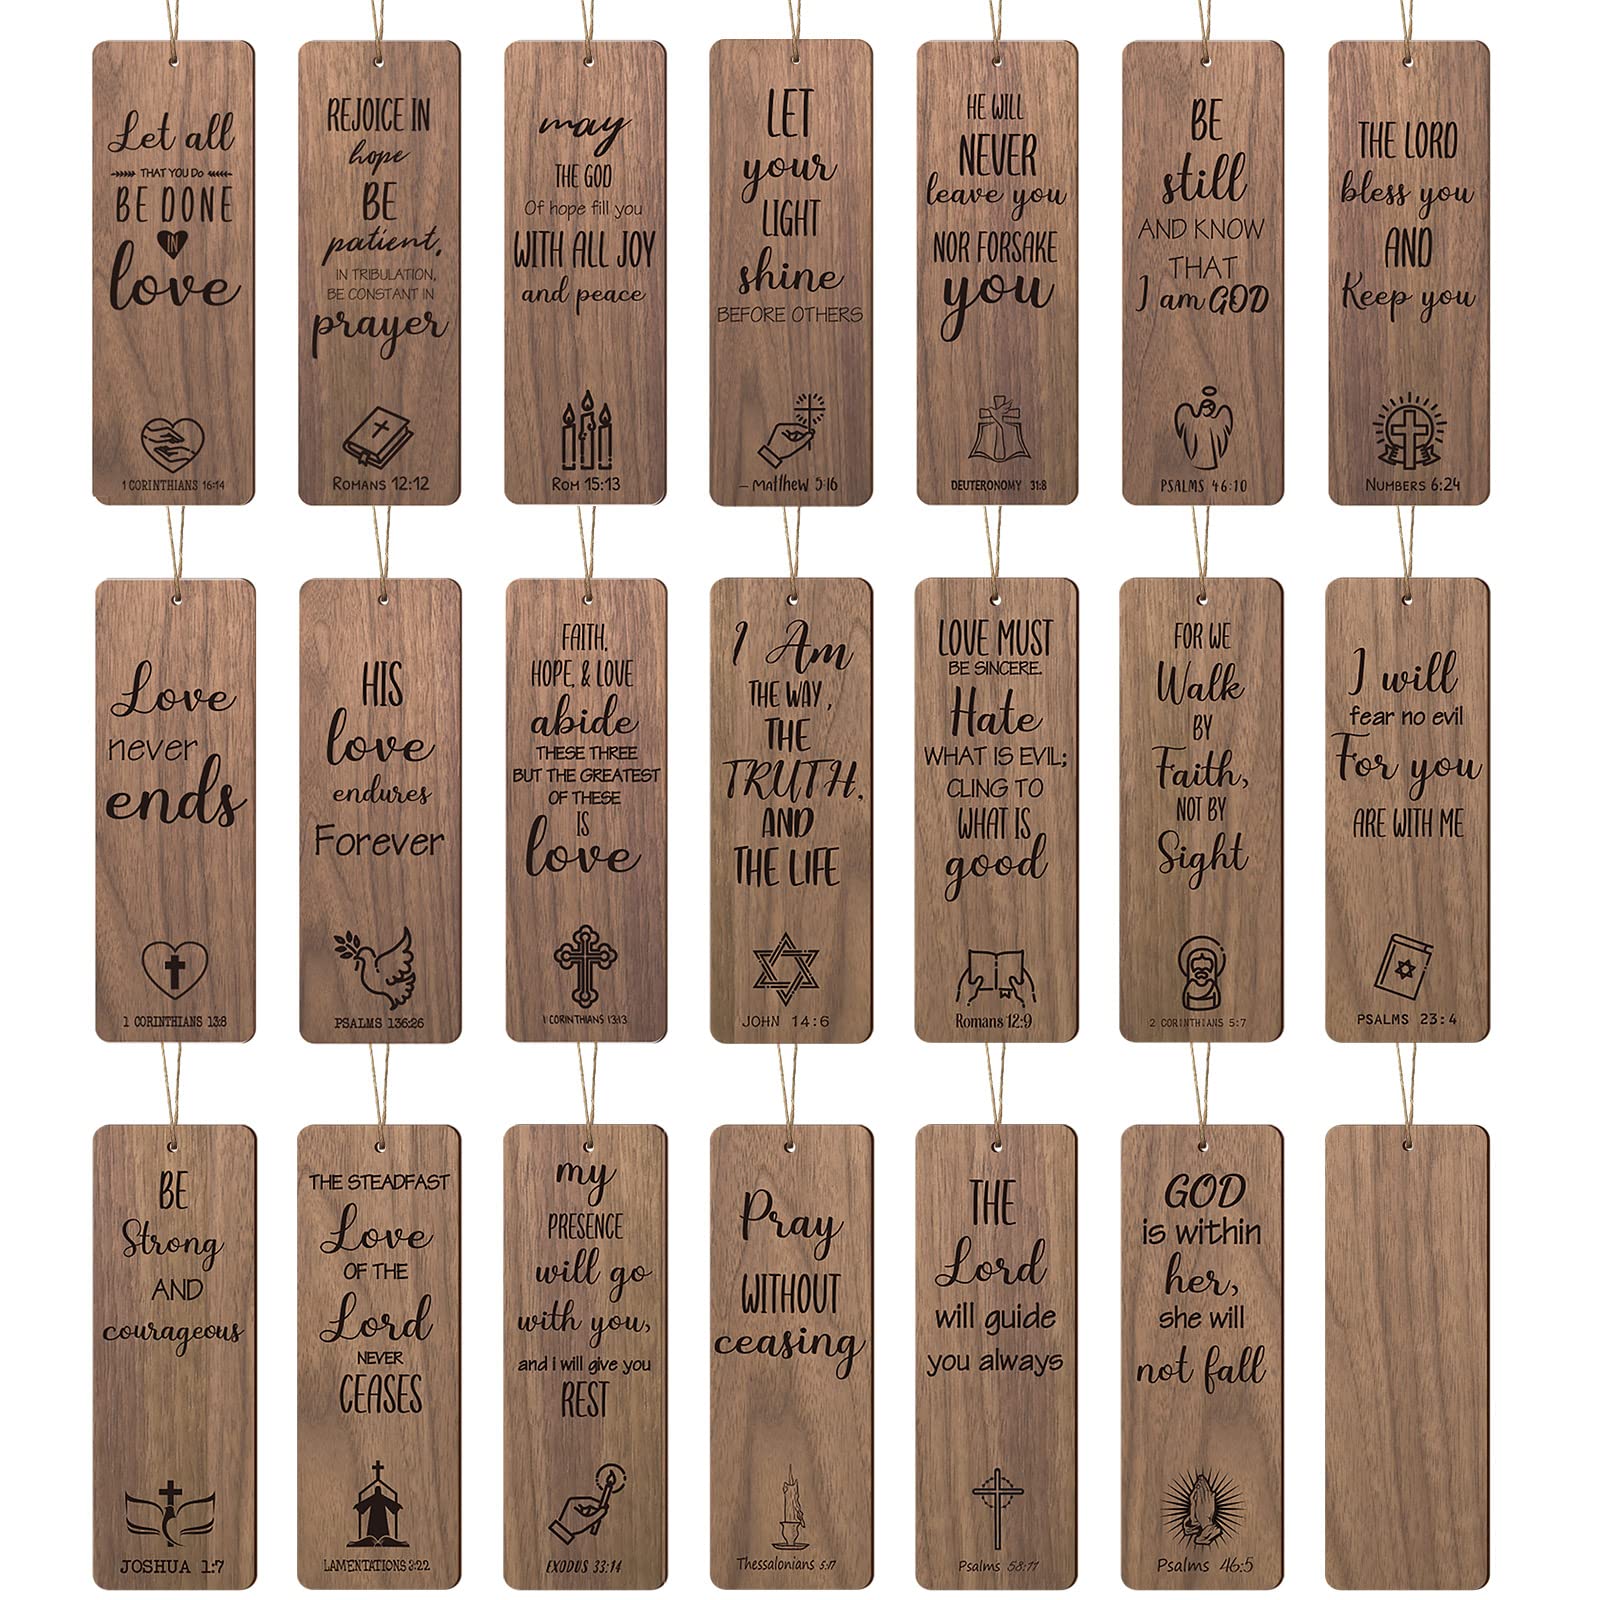 Let all
THAT YOU DO
BE DONE
IN
love
1 CORINTHIANS 16:14
REJOICE IN
hope
BE
patient,
IN TRIBULATION,
BE CONSTANT IN
prayer
ROMANS 12:12
may
THE GOD
Of hope fill you
WITH ALL JOY
and peace
ROM 15:13
LET
your
LIGHT
shine
BEFORE OTHERS
- Matthew 5:16
HE WILL
NEVER
leave you
NOR FORSAKE
you
DEUTERONOMY 31:8
BE
still
AND KNOW
THAT
I am GOD
PSALMS 46:10
THE LORD
bless you
AND
Keep you
NUMBERS 6:24
Love
never
ends
1 CORINTHIANS 13:8
HIS
love
endures
Forever
PSALMS 136:26
FAITH,
HOPE, & LOVE
abide
THESE THREE
BUT THE GREATEST
OF THESE
IS
love
1 CORINTHIANS 13:13
I Am
THE WAY,
THE
TRUTH,
AND
THE LIFE
JOHN 14:6
LOVE MUST
BE SINCERE.
Hate
WHAT IS EVIL;
CLING TO
WHAT IS
good
Romans 12:9
FOR WE
Walk
BY
Faith,
NOT BY
Sight
2 CORINTHIANS 5:7
I will
fear no evil
For you
ARE WITH ME
PSALMS 23:4
BE
Strong
AND
courageous
JOSHUA 1:7
THE STEADFAST
Love
OF THE
Lord
NEVER
CEASES
LAMENTATIONS 3:22
my
PRESENCE
will go
with you,
and i will give you
REST
EXODUS 33:14
Pray
WITHOUT
ceasing
Thessalonians 5:17
THE
Lord
will guide
you always
Psalms 58:11
GOD
is within
her,
she will
not fall
Psalms 46:5